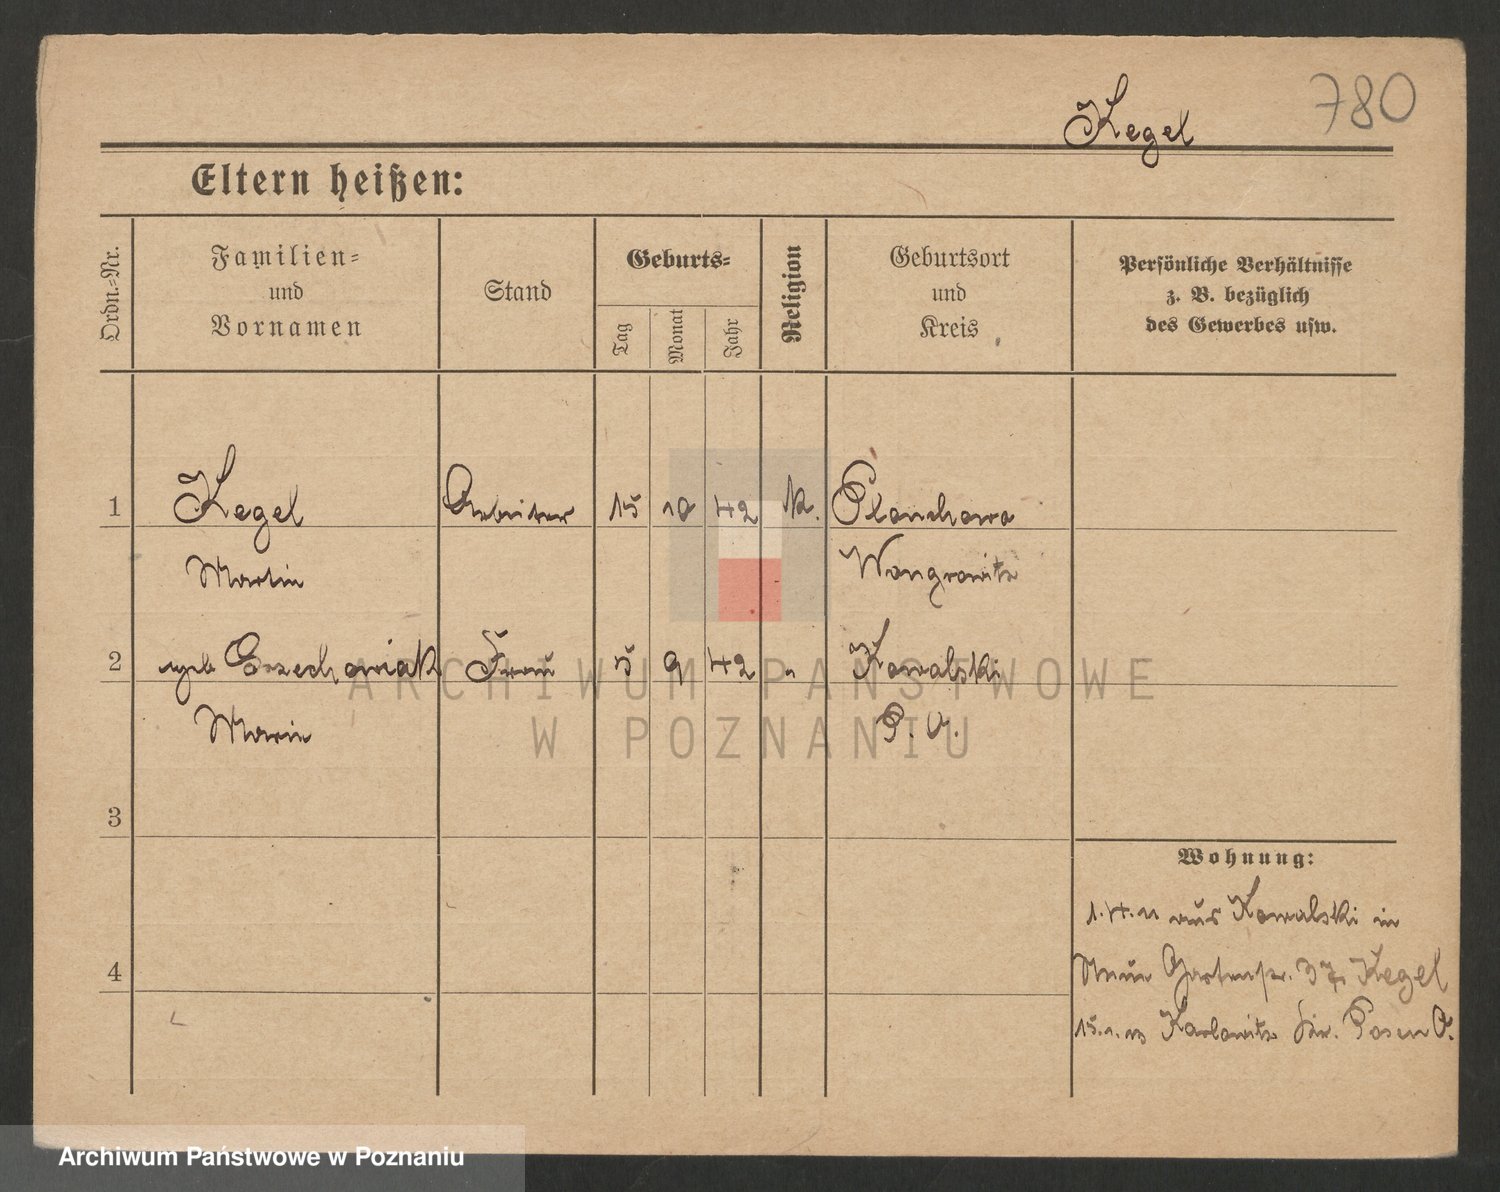 Kegel 780
Eltern heißen:
Ordn.-Nr.
Familien-
und
Vornamen
Stand
Geburts-
Tag
Monat
Jahr
Religion
Geburtsort
und
Kreis
Persönliche Verhältnisse
z. B. bezüglich
des Gewerbes usw.
1 Kegel Arbeiter 15 10 42 k. Planchawo
Martin Wongrowitz
2 geb Grzechowiak Frau 5 9 42 " Kowalski
Marie P. O.
3
4
Wohnung:
1.4.11 aus Kowalski in
Neue Gartenstr. 37, Kegel
15.1.13 Karlowitz Kr. Posen O.
ARCHIWUM PAŃSTWOWE
W POZNANIU
Archiwum Państwowe w Poznaniu